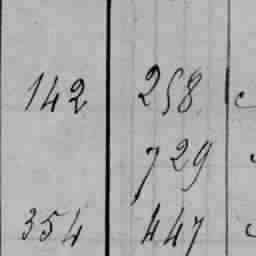 142 258
729
354 447